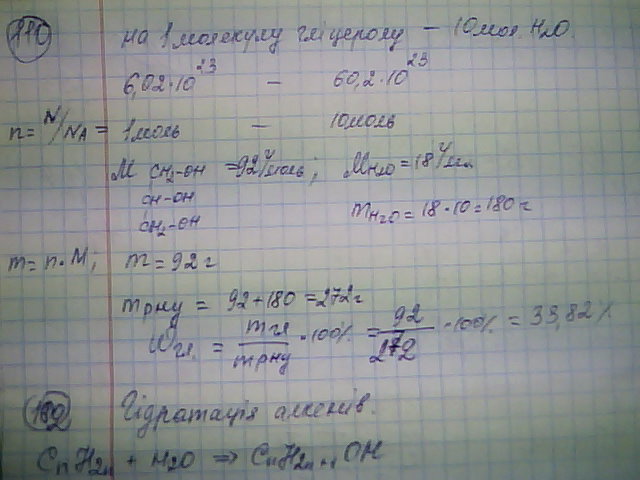 180 на 1 молекулу гліцеролу – 10 мол. H₂O.
6,02·10²³ – 60,2·10²³
n = N/NA = 1 моль – 10 моль
M CH₂-OH = 92 г/моль; MH₂O = 18 г/моль
CH-OH
CH₂-OH mH₂O = 18·10 = 180 г
m = n·M; m = 92 г
mрну = 92+180 = 272 г
Wгл. = mгл/mрну ·100% = 92/272 ·100% = 33,82%
182 Гідратація алкенів.
CnH2n + H₂O ⇒ CnH2n+1OH